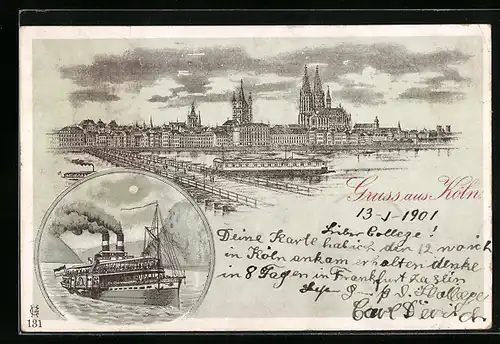 Gruss aus Köln
13-1-1901
Lieber College!
Deine Karte hab ich den 12 wo ich
in Köln ankam erhalten denke
in 8 Tagen in Frankfurt zu sein
College
Carl
131